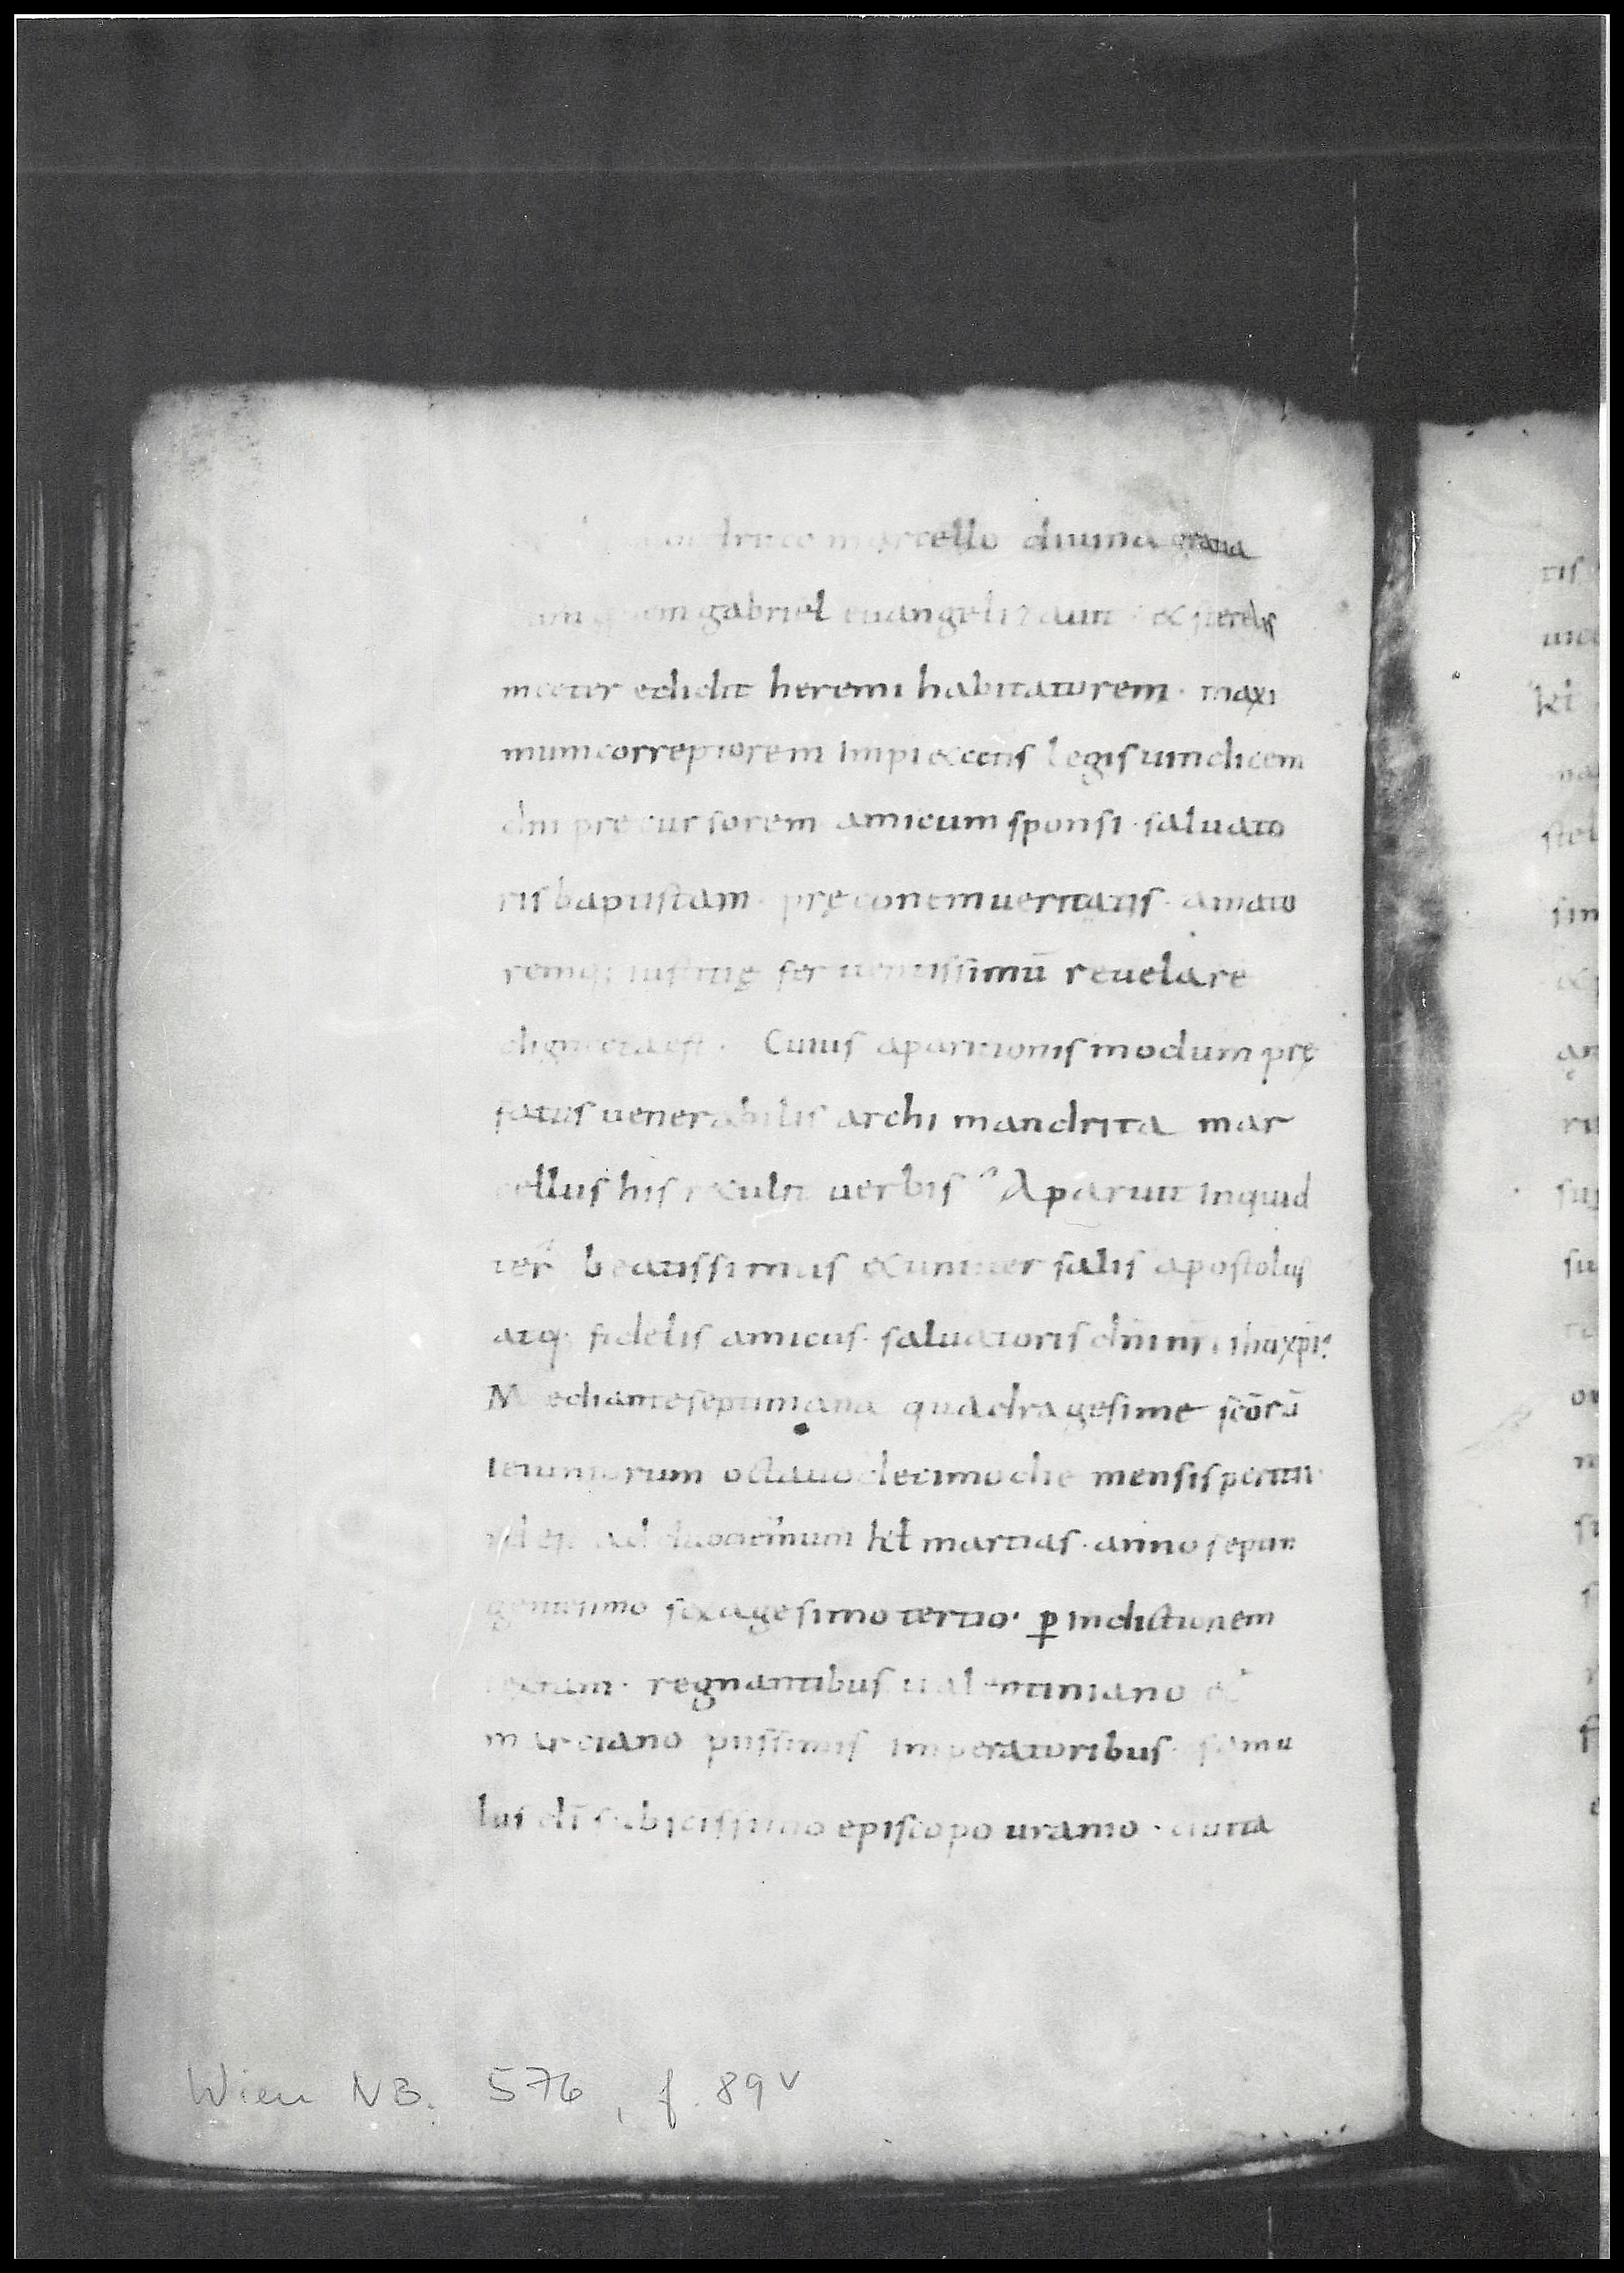 marcello diuina gratia
quem gabriel euangelizauit · & sterelis
mater edidit heremi habitatorem · maxi
mum correptorem impi&atis legis uindicem
dni precursorem amicum sponsi · saluato
ris baptistam · pręconem ueritatis · amato
remq; iustitię feruentissimū reuelare
dignata est · Cuius aparitionis modum prę
fatus uenerabilis archi mandrita mar
cellus his r&ulit uerbis Aparuit inquid
ter beatissimus & uniuersalis apostolus
atq; fidelis amicus · saluatoris dni nri ihu xpi
Mediante septimana quadragesime scōrū
ieiuniorum octauo decimo die mensis peritii ·
id est ad duodecimum kł martias · anno septin
gentesimo sexagesimo tertio · ꝑ indictionem
sextam · regnantibus ualentiniano &
marciano piissimis imperatoribus · famu
lus dī episcopo uranio · ciuita
Wien NB. 576, f. 89v
tis
ki
na
stel
sin
ru
su